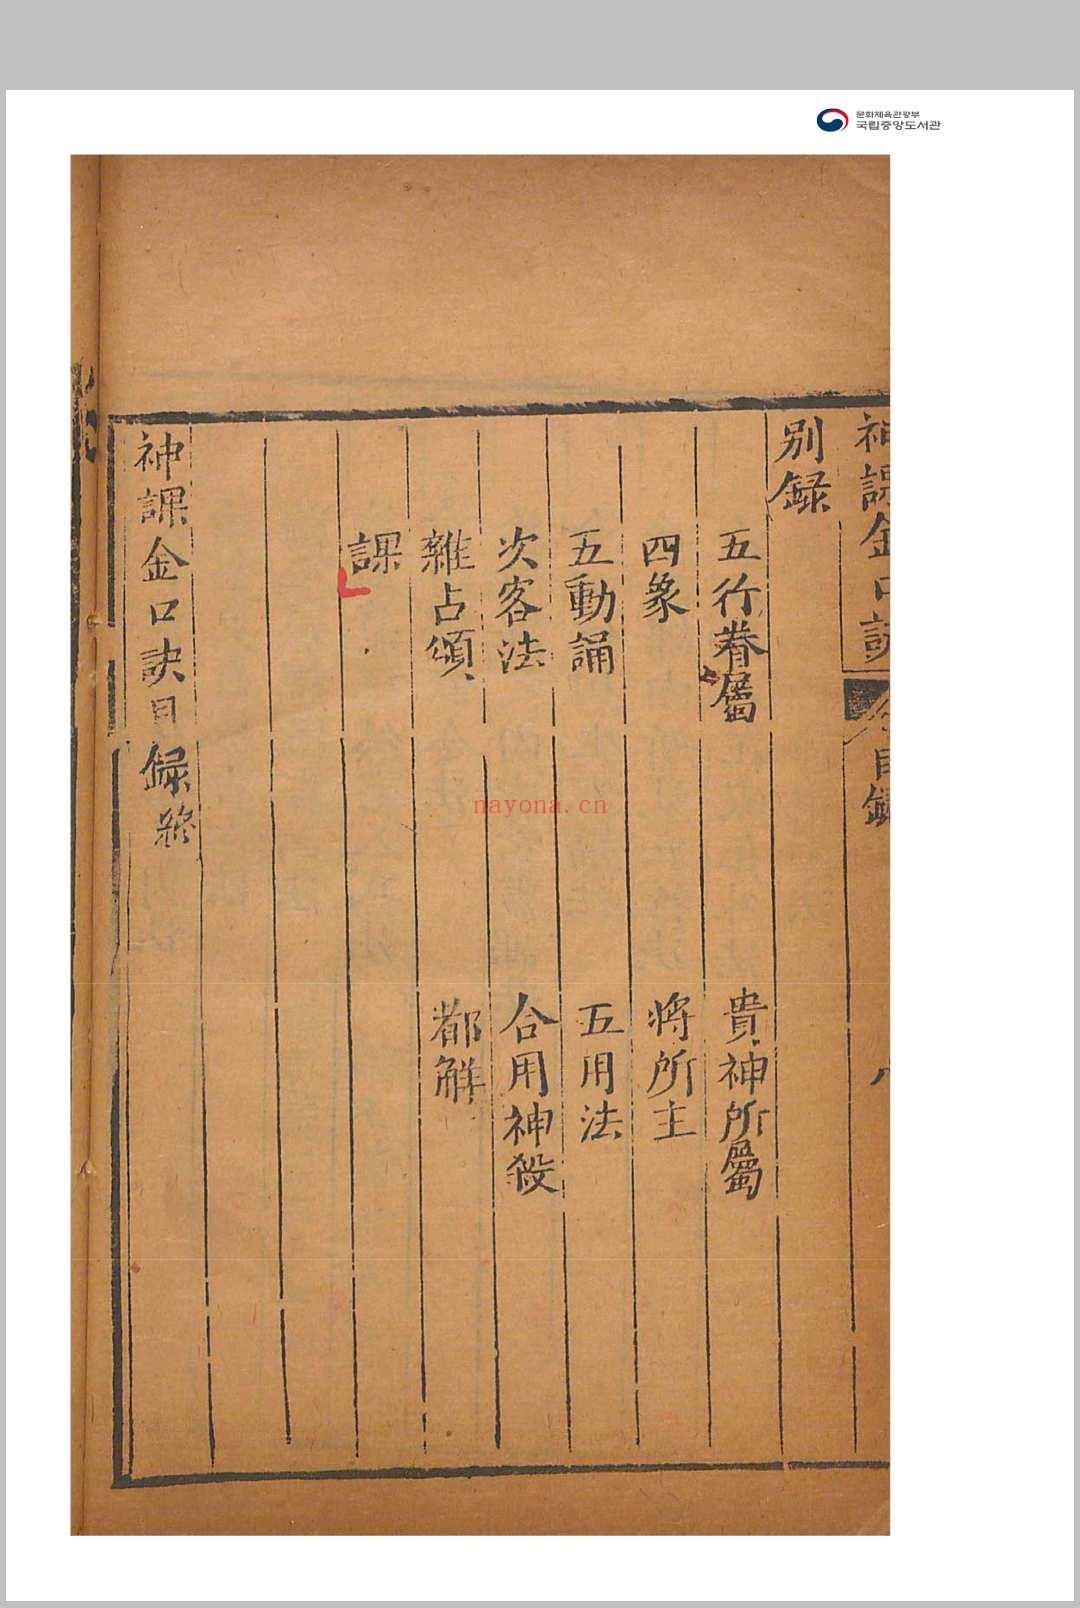 문화체육관광부
국립중앙도서관
神課金口訣
目録
别録
五行眷屬
貴神所屬
四象
將所主
五動誦
五用法
次客法
合用神殺
雜占頌
都解
課
神課金口訣目録終
nayona.cn